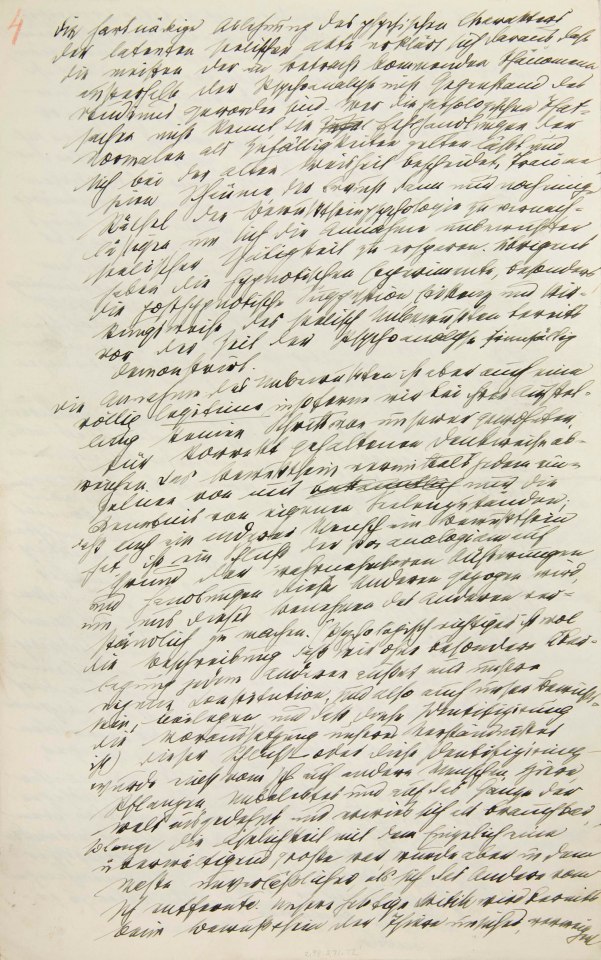 4
Die hartnäckige Ablehnung des psychischen Charakters
der latenten seelischen Akte erklärt sich daraus, daß
die meisten der in Betracht kommenden Phänomene
außerhalb der Psychoanalyse nicht Gegenstand des
Studiums geworden sind. Wer die pathologischen That-
sachen nicht kennt, die Fehlhandlungen der
Normalen als Zufälligkeiten gelten läßt und
sich bei der alten Weisheit bescheidet, Träume
seien Schäume, der braucht dann nur noch einige
Rätsel der Bewußtseinspsychologie zu vernach-
lässigen um sich die Annahme unbewußter
seelischer Thätigkeit zu ersparen. Übrigens
haben die hypnotischen Experimente, besonders
die posthypnotische Suggestion Existenz und Wir-
kungsweise des seelisch Unbewußten bereits
vor der Zeit der Psychoanalyse sinnfällig
demonstrirt.
Die Annahme des Unbewußten ist aber auch eine
völlig legitime, insoferne wir bei ihrer Aufstel-
lung keinen Schritt von unserer gewohnten,
für korrekt gehaltenen Denkweise ab-
weichen. Das Bewußtsein vermittelt jedem ein-
zelnen von uns nur die
Kenntnis von eigenen Seelenzuständen;
daß auch ein anderer Mensch ein Bewußtsein
hat, ist ein Schluß der per analogiam auf
Grund der wahrnehmbaren Äußerungen
und Handlungen dieses Anderen gezogen wird,
um uns dieses Benehmen des Anderen ver-
ständlich zu machen. (Psychologisch richtiger ist wol
die Beschreibung daß wir ohne besondere Über-
legung jedem Anderen außer uns unsere
eigene Constitution, und also auch unser Bewußt-
sein, beilegen und daß diese Identifizirung
die Voraussetzung unseres Verständnisses
ist) Dieser Schluß – oder diese Identifizirung –
wurde einst vom Ich auf andere Menschen, Thiere
Pflanzen, Unbelebtes und auf das Ganze der
Welt ausgedehnt und erwies sich als brauchbar,
solange die Ähnlichkeit mit dem Einzel-Ich eine
überwältigend große war, wurde aber in dem
Maße unverläßlicher als sich das Andere vom
Ich entfernte. Unsere heutige Kritik wird bereits
beim Bewußtsein der Thiere unsicher, verweigert